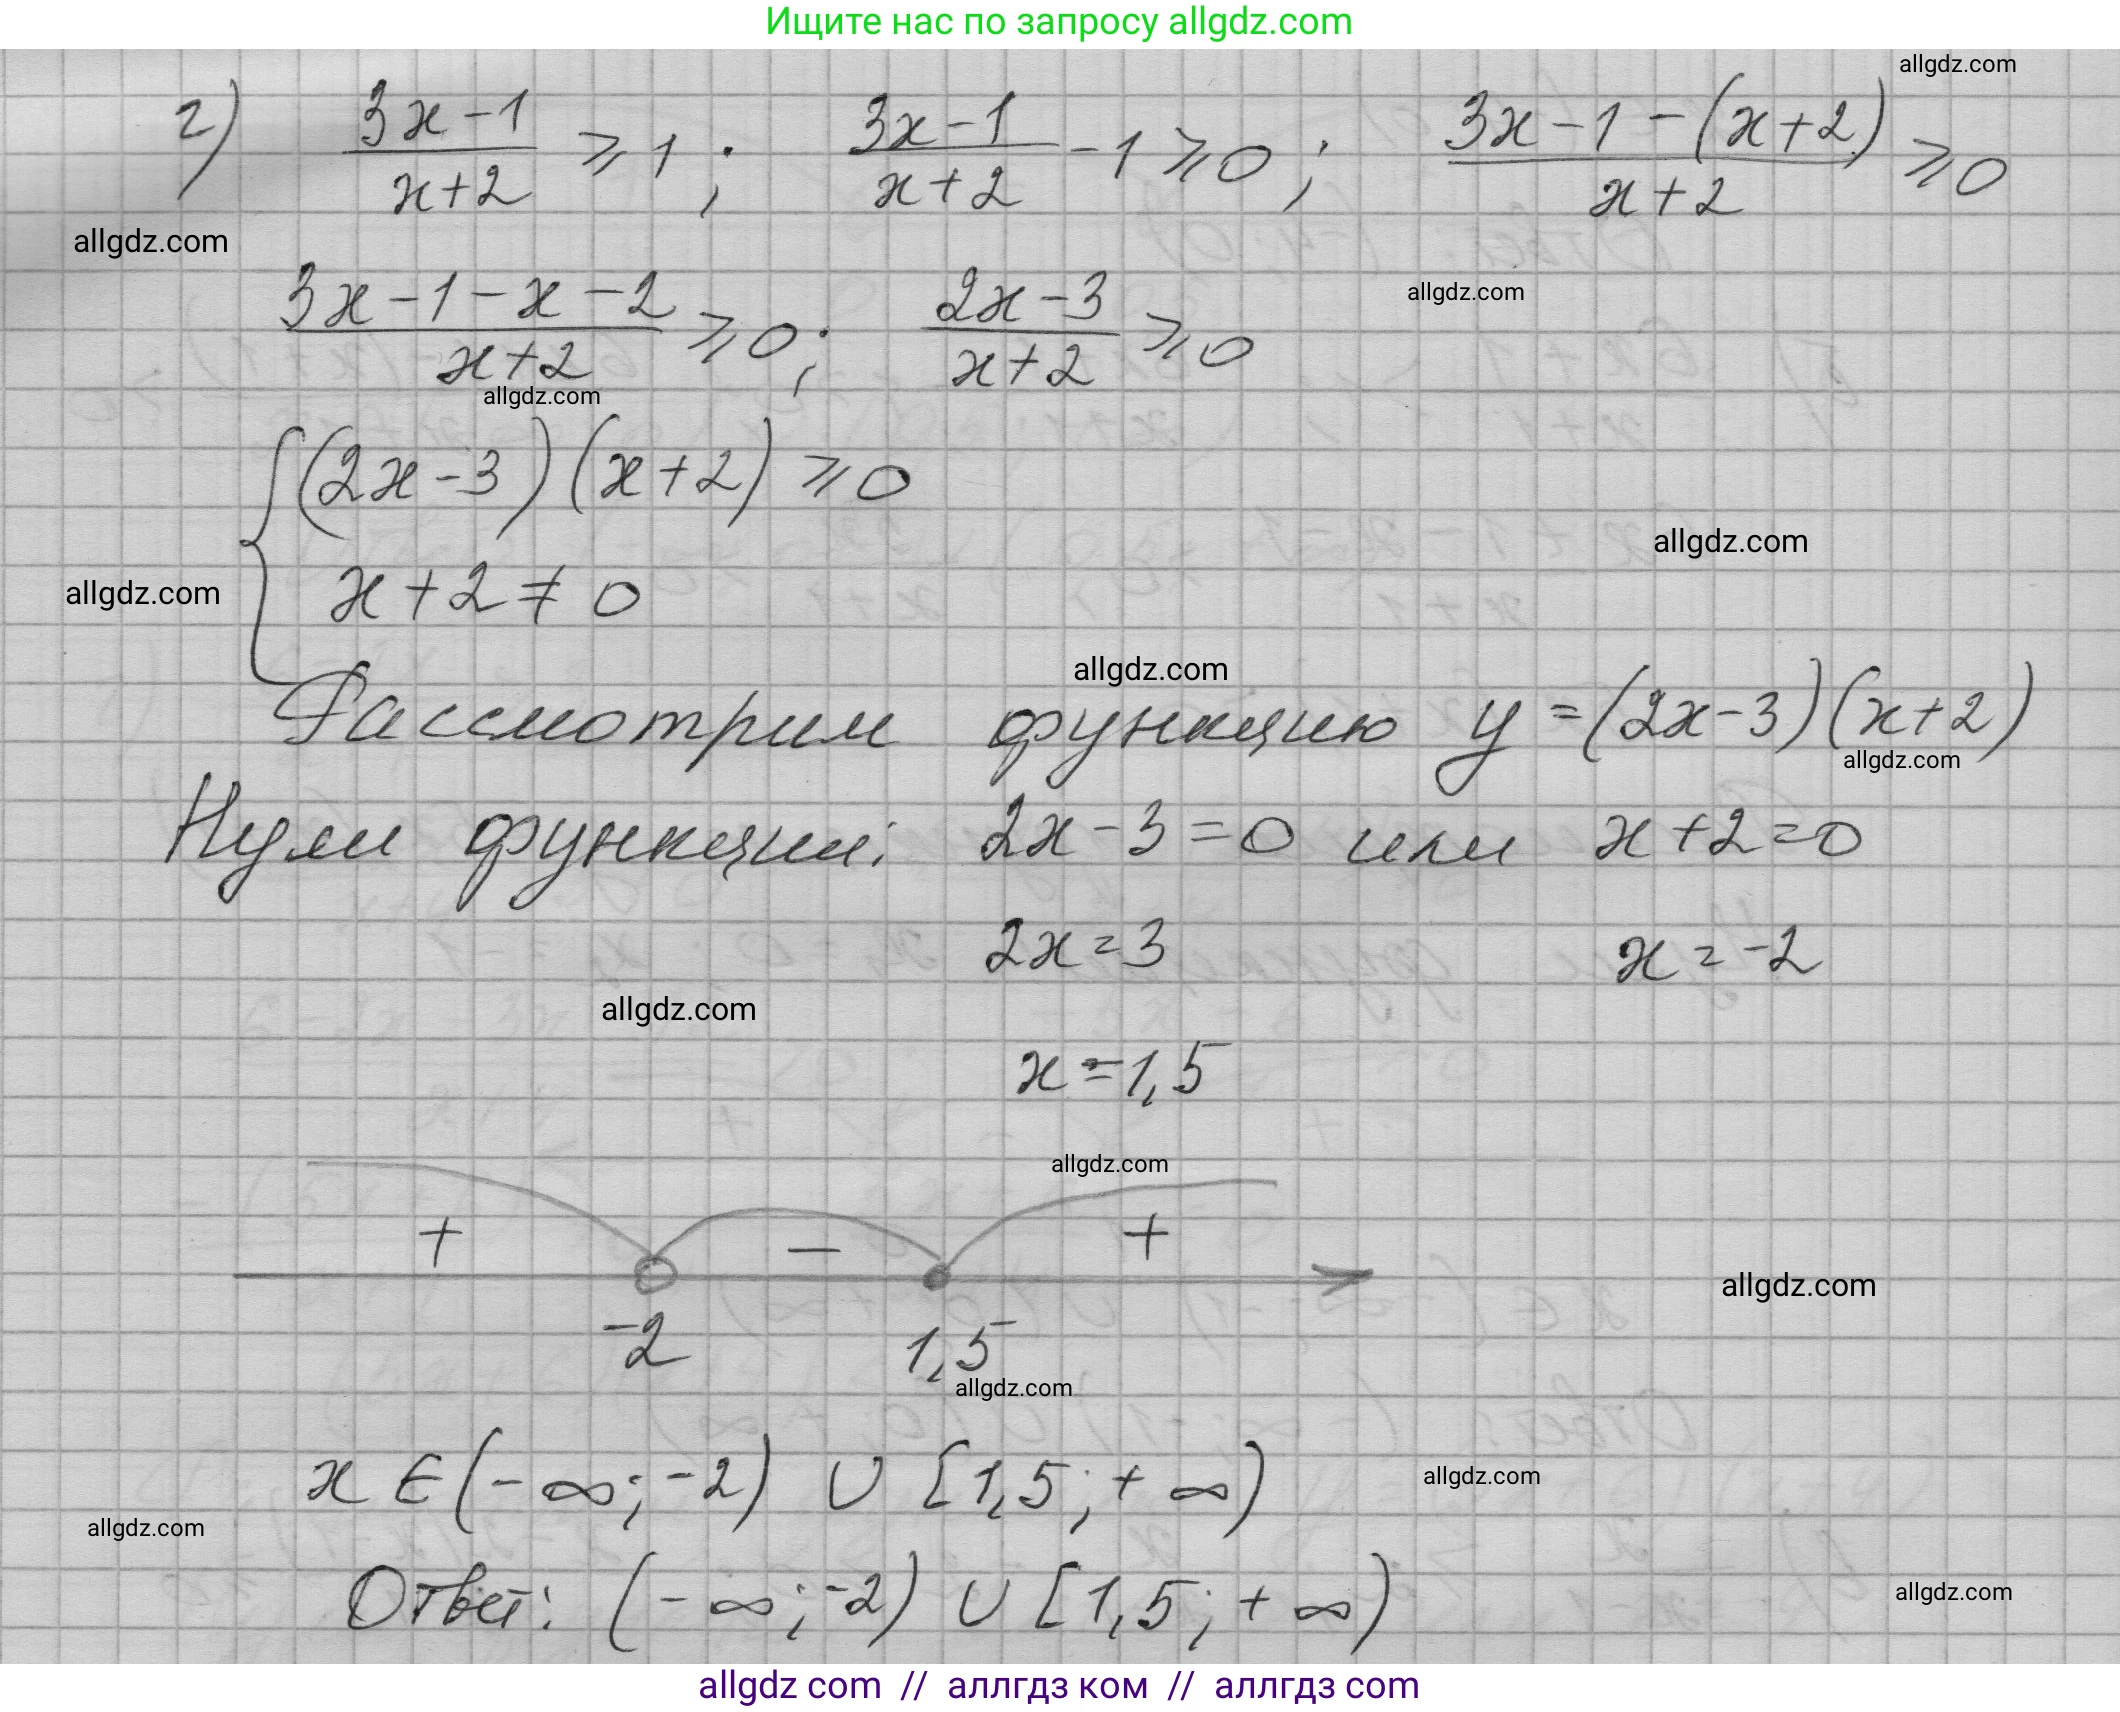 Ищите нас по запросу allgdz.com
allgdz.com
г) (3x-1)/(x+2) ⩾ 1; (3x-1)/(x+2) - 1 ⩾ 0; (3x-1-(x+2))/(x+2) ⩾ 0
allgdz.com
(3x-1-x-2)/(x+2) ⩾ 0; (2x-3)/(x+2) ⩾ 0
allgdz.com
allgdz.com
{ (2x-3)(x+2) ⩾ 0
allgdz.com
x+2 ≠ 0
allgdz.com
allgdz.com
Рассмотрим функцию y=(2x-3)(x+2)
allgdz.com
Нули функции: 2x-3=0 или x+2=0
2x=3 x=-2
allgdz.com
x=1,5
allgdz.com
+ - +
allgdz.com
-2 1,5
allgdz.com
x ∈ (-∞; -2) ∪ [1,5; +∞)
allgdz.com
allgdz.com
Ответ: (-∞; -2) ∪ [1,5; +∞)
allgdz.com
allgdz com // аллгдз ком // аллгдз com